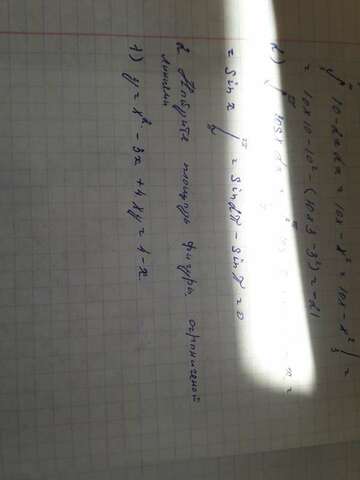 10-2x dx = 10x - x² = 10x - x² | =
= 10×10 - 10² - (10×3 - 3²) = -21
2)
= sin x = sin2π - sinπ = 0
2 Найдите площадь фигуры, ограниченой
линиями
1) y = x² - 3x + 4 xy = 1 - x